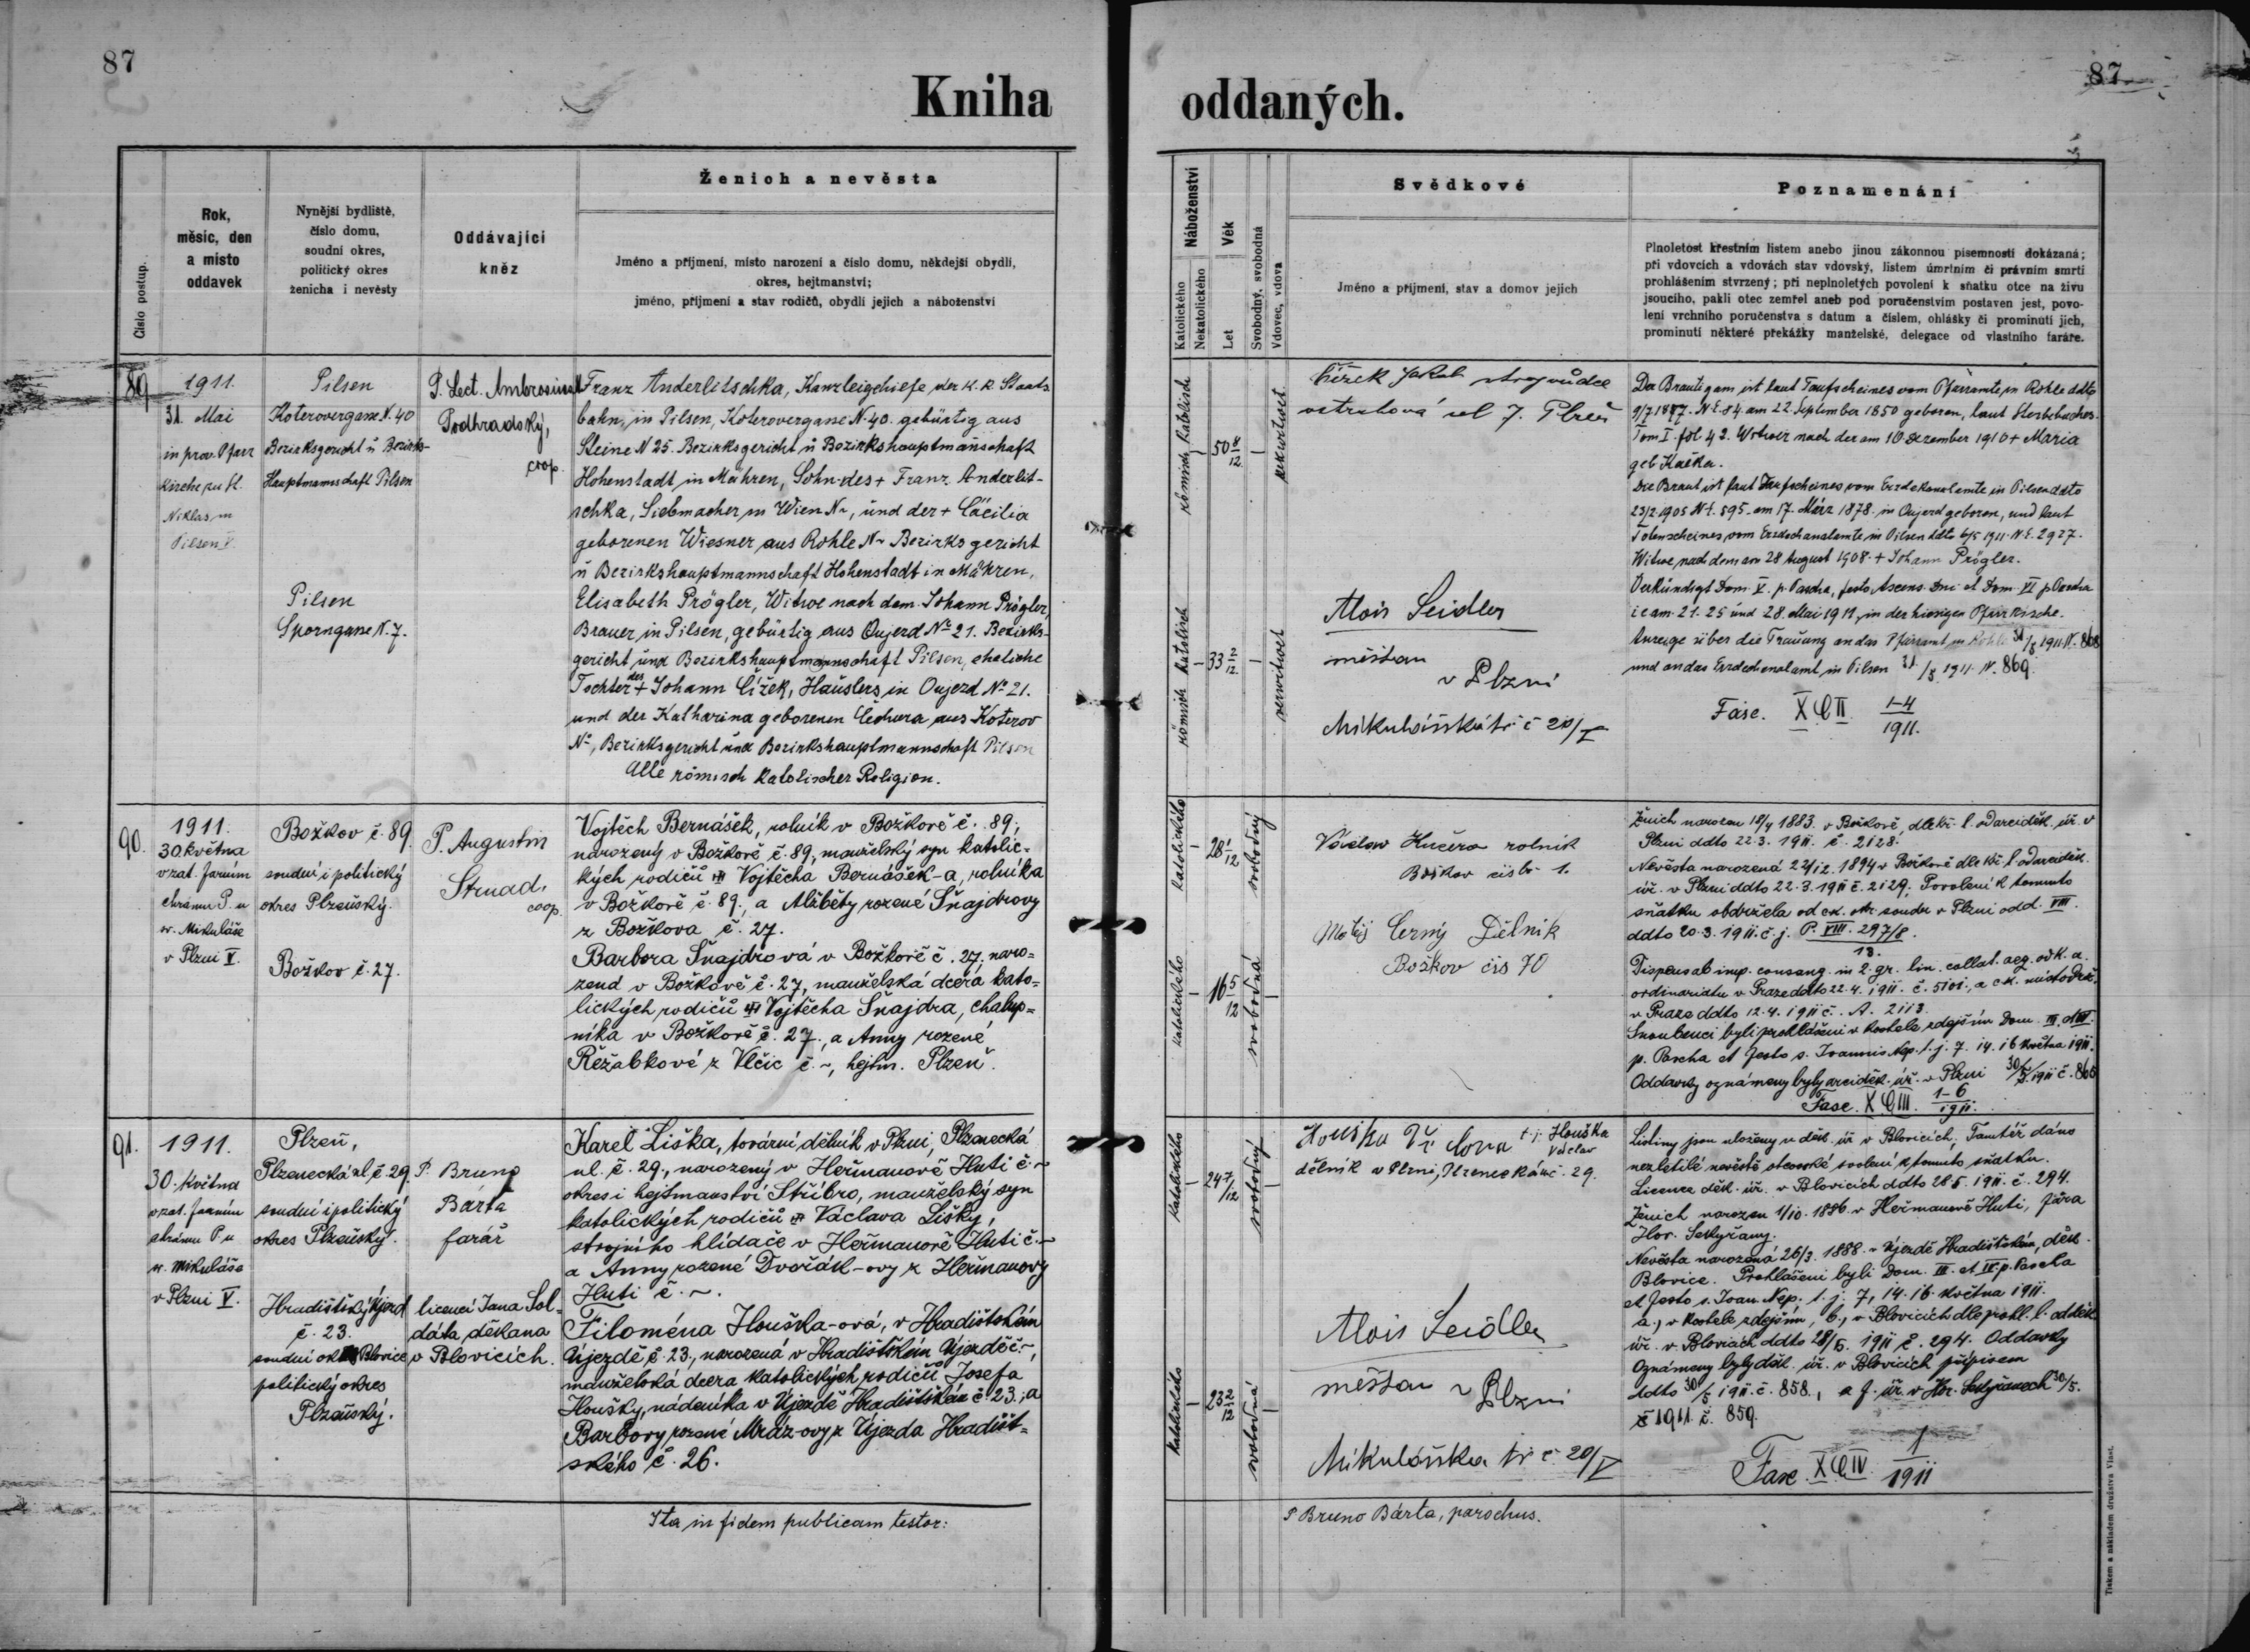 87
Kniha oddaných.
87
Číslo postup.
Rok,
měsíc, den
a místo
oddavek
Nynější bydliště,
číslo domu,
soudní okres,
politický okres
ženicha i nevěsty
Oddávající
kněz
Ženich a nevěsta
Jméno a příjmení, místo narození a číslo domu, někdejší obydlí,
okres, hejtmanství;
jméno, příjmení a stav rodičů, obydlí jejich a náboženství
Náboženství
Katolického
Nekatolického
Věk
Let
Svobodný, svobodná
Vdovec, vdova
Svědkové
Jméno a příjmení, stav a domov jejich
Poznamenání
Plnoletost křestním listem anebo jinou zákonnou písemností dokázaná;
při vdovcích a vdovách stav vdovský, listem úmrtním či právním smrti
prohlášením stvrzený; při neplnoletých povolení k sňatku otce na živu
jsoucího, pakli otec zemřel aneb pod poručenstvím postaven jest, povo-
lení vrchního poručenstva s datum a číslem, ohlášky či prominutí jich,
prominutí některé překážky manželské, delegace od vlastního faráře.
89
1911.
31. Mai
in prov. Pfarr
kirche zu st.
Niklas in
Pilsen V.
Pilsen
Koterovergasse N. 40
Bezirksgericht ů Bezirks-
Hauptmannschaft Pilsen
Pilsen
Sporngasse N. 7.
P. Lect. Ambrosius
Podhradský,
coop.
Franz Anderlitschka, Kanzleigehilfe der k. k. Staats
bahn, in Pilsen, Koterovergasse N. 40. gebürtig aus
Steine N 25. Bezirksgericht ů Bezirkshauptmanschaft
Hohenstadt in Mähren, Sohn des + Franz Anderlit-
schka, Siebmacher in Wien N~, und der + Cäcilia
geborenen Wiesner aus Rohle N~ Bezirksgericht
ů Bezirkshauptmannschaft Hohenstadt in Mähren,
Elisabeth Prögler, Witwe nach dem Johann Prögler
Brauer in Pilsen, gebürtig aus Oujezd No 21. Bezirks-
gericht und Bezirkshauptmannschaft Pilsen, eheliche
Tochter des + Johann Čížek, Häuslers in Oujezd No 21.
und der Katharina geborenen Čechura aus Koterov
No, Bezirksgericht und Bezirkshauptmannschaft Pilsen
Alle römisch katolischer Religion.
römisch katolisch
50 8/12
verwitwet
Čížek Jakub strojvůdce
ul 7. Plzeň
römisch katolisch
33 2/12
verwitwet
Alois Seidler
měšťan
v Plzni
Mikulášská tř č 20/V
Der Bräutigam ist laut Taufscheines vom Pfarramte in Rohle ddto
9/7 1877. N. E. 84 am 22. September 1850 geboren, laut Sterbebuches
Tom I. fol 42. Witwer nach der am 10. Dezember 1910 + Maria
geb Kaška.
Die Braut ist laut Taufscheines vom Erzdekanalamte in Pilsen ddto
23/2. 1905 N. E. 595. am 17. März 1878. in Oujezd geboren, und laut
Totenscheines vom Erzdechanalamte in Pilsen ddto 6/5 1911. N. E. 2927.
Witwe nach dem am 28 August 1908 + Johann Prögler.
Verkündigt Dom. V. p. Pascha, festo Ascens. Dni et Dom. VI p Pascha
i. e am 21. 25 und 28. Mai 1911, in der hiesigen Pfarrkirche.
Anzeige über die Trauung an das Pfarramt in Rohle 31/5 1911 N. 868
und an das Erzdechanalamt in Pilsen 31./5 1911 N. 869.
Fasc. XCII 1-4/1911.
90.
1911.
30. května
v zat. farním
chrámu P. u
sv. Mikuláše
v Plzni V.
Božkov č. 89.
soudní i politický
okres Plzeňský.
Božkov č. 27.
P. Augustin
Strnad,
coop.
Vojtěch Bernášek, rolník v Božkově č. 89;
narozený v Božkově č. 89, manželský syn katolic-
kých rodičů Vojtěcha Bernášek-a, rolníka
v Božkově č. 89., a Alžběty rozené Šnajdrovy
z Božkova č. 27.
Barbora Šnajdrová v Božkově č. 27, naro=
zená v Božkově č. 27, manželská dcera kato=
lických rodičů Vojtěcha Šnajdra, chalup=
níka v Božkově č. 27., a Anny rozené
Řežabkové z Vlčic č. ~, hejtm. Plzeň.
katolického
28 1/12
svobodný
Václav Kučera rolník
Božkov číslo 1.
katolického
16 5/12
svobodná
Matěj Černý Dělník
Božkov čís 70
Ženich narozen 18/4 1883. v Božkově, dle kř. l. od arciděk. úř. v
Plzni ddto 22.3. 1911. č. 2128.
Nevěsta narozená 22/12. 1894 v Božkově dle kř. l od arciděk.
úř. v Plzni ddto 22.3. 1911 č. 2129. Povolení k tomuto
sňatku obdržela od c.k. okr. soudu v Plzni odd. VIII.
ddto 20.3. 1911. č. j. P. VIII. 297/8.
13.
Dispensab imp. consang. in 2. gr. lin. collat. aeq. od k. a.
ordinariatu v Praze ddto 22.4. 1911. č. 5101., a c.k. místodrž.
v Praze ddto 12.4. 1911 č. A. 2113.
Snoubenci byli prohlášeni v kostele zdejším Dom. III. et IV.
p. Pascha et festo s. Joannis Nep. t. j. 7. 14. 16 května 1911.
Oddavky oznámeny byly arciděk. úř. v Plzni 30/5. 1911 č. 865
Fasc. XCIII. 1-6/1911.
91.
1911.
30. května
v zat. farním
chrámu P. u
sv. Mikuláše
v Plzni V.
Plzeň,
Plzenecká ul. č 29.
soudní i politický
okres Plzeňský.
Hradišťský Újezd
č. 23.
soudní okres Blovice
politický okres
Plzeňský.
P. Bruno
Bárta
farář
licencí Jana Sol=
dáta, děkana
v Blovicích.
Karel Liška, tovární dělník v Plzni, Plzenecká
ul. č. 29., narozený v Heřmanově Huti č. ~
okres i hejtmanství Stříbro, manželský syn
katolických rodičů Václava Lišky,
strojního hlídače v Heřmanově Huti č. ~
a Anny rozené Dvořák-ovy z Heřmanovy
Huti č. ~.
Filoména Houška-ová, v Hradišťském
Újezdě č. 23., narozená v Hradišťském Újezdě č. ~,
manželská dcera katolických rodičů Josefa
Houšky, nádeníka v Újezdě Hradišťském č. 23., a
Barbory rozené Mráz-ovy z Újezda Hradišť=
ského č. 26.
katolického
24 7/12
svobodný
t. j. Houška
Václav
dělník v Plzni, Plzenecká ul č. 29.
katolického
23 2/12
svobodná
Alois Seidler
měšťan v Plzni
Mikulášska tř č 20/V
Listiny jsou uloženy u děk. úř v Blovicích. Tamtéž dáno
nezletilé nevěstě otcovské svolení k tomuto sňatku.
Licence děk. úř. v Blovicích ddto 28.5. 1911. č. 294.
Ženich narozen 1/10. 1886. v Heřmanově Huti, fara
Hor. Sekyřany.
Nevěsta narozená 26/3. 1888. v Újezdě Hradišťském, děk.
Blovice. Prohlášeni byli Dom. III. et IV. p. Pascha
et festo s. Joan. Nep. t. j. 7., 14. 16. května 1911.
a.) v kostele zdejším, b., v Blovicích dle prohl. l. od děk.
úř. v Blovicích ddto 28/5. 1911 č. 294. Oddavky
oznámeny byly děk. úř. v Blovicích přípisem
ddto 30/5 1911. č. 858., a f. úř. v Hor. Sekyřanech 30/5.
1911. č. 859.
Fasc. XCIV 1/1911
Ita in fidem publicam testor:
P Bruno Bárta, parochus.
Tiskem a nákladem družstva Vlast.